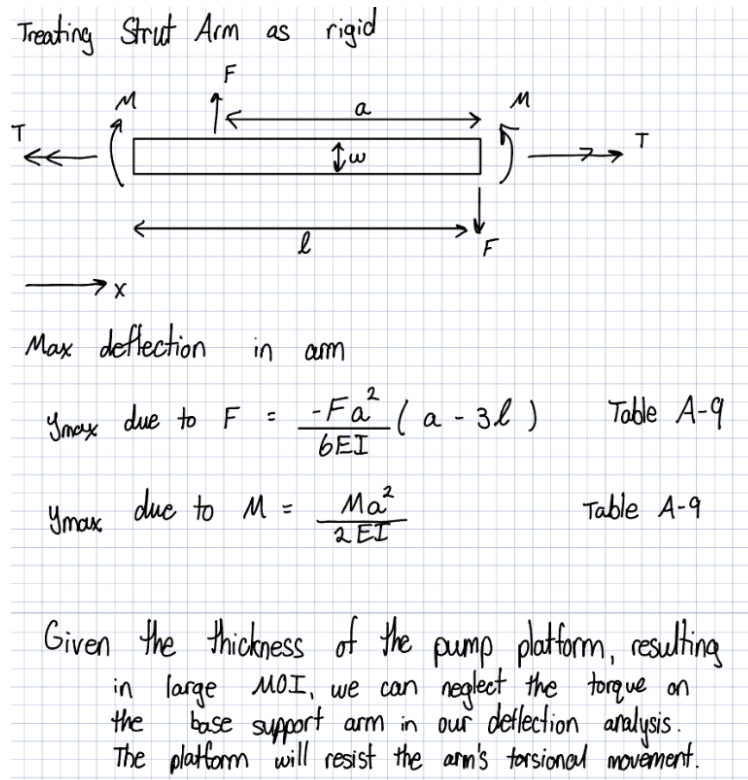 Treating Strut Arm as rigid
F
M a M
T T
w
l F
x
Max deflection in arm
ymax due to F = -Fa²/6EI (a - 3l) Table A-9
ymax due to M = Ma²/2EI Table A-9
Given the thickness of the pump platform, resulting
in large MOI, we can neglect the torque on
the base support arm in our deflection analysis.
The platform will resist the arm's torsional movement.